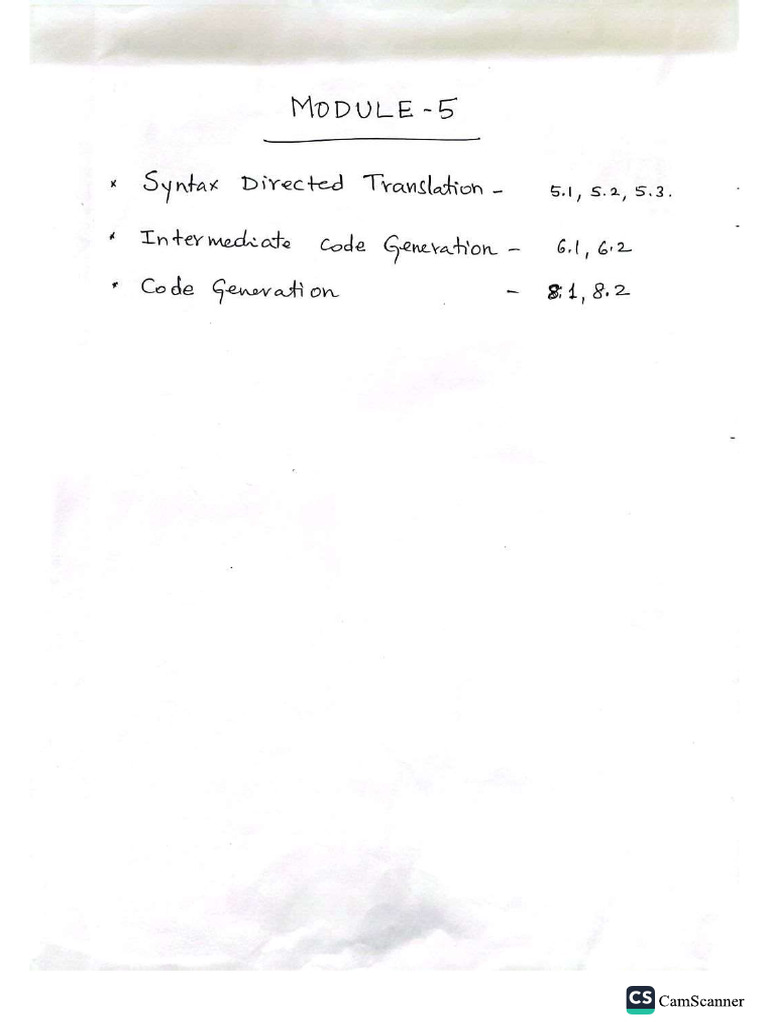 MODULE - 5
* Syntax Directed Translation - 5.1, 5.2, 5.3.
* Intermediate code Generation - 6.1, 6.2
* Code Generation - 8.1, 8.2
CS CamScanner